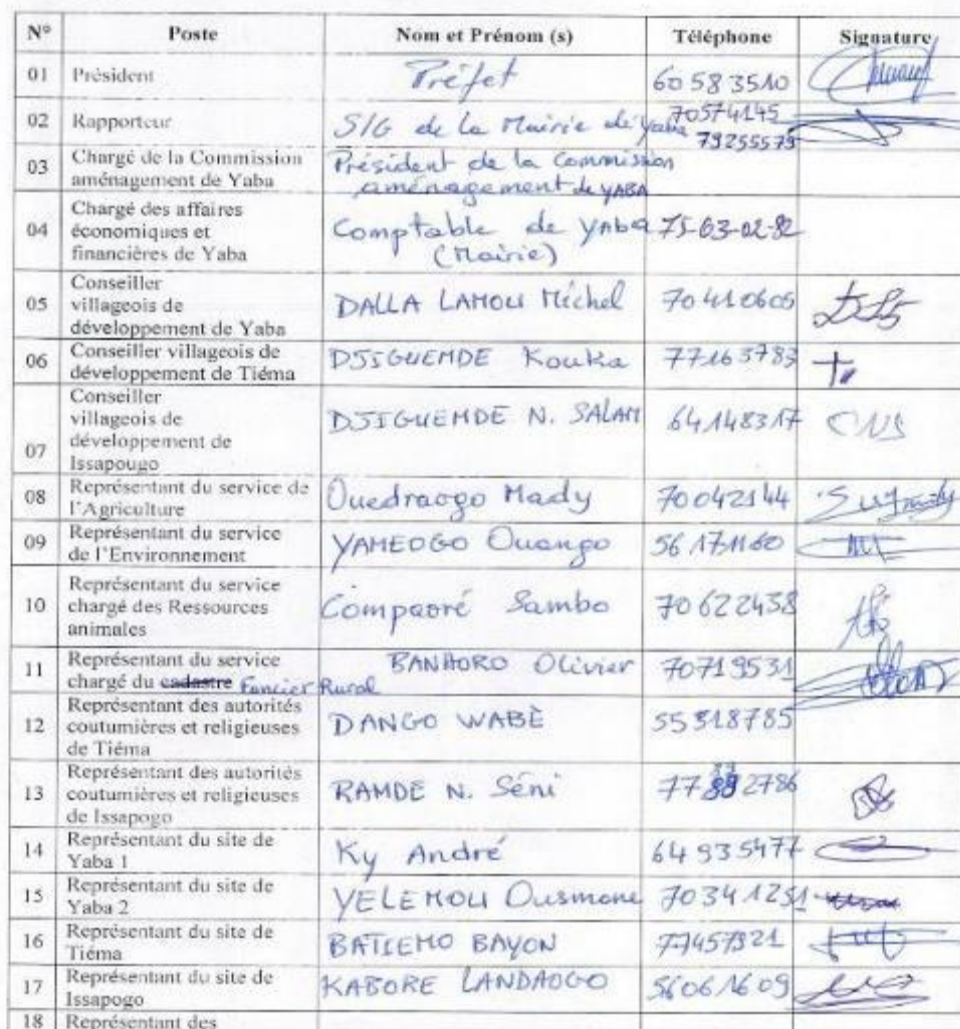 N° Poste Nom et Prénom (s) Téléphone Signature
01 Président Préfet 60 58 35 10
02 Rapporteur S/G de la Mairie de Yaba 70574145
79255579
03 Chargé de la Commission
aménagement de Yaba
Président de la Commission
aménagement de YABA
04 Chargé des affaires
économiques et
financières de Yaba
Comptable de YABA
(Mairie)
75-63-02-82
05 Conseiller
villageois de
développement de Yaba
DALLA LAMOU Michel 70410605
06 Conseiller villageois de
développement de Tiéma
DJIGUEMDE Kouka 77163783
07 Conseiller
villageois de
développement de
Issapougo
DJIGUEMDE N. SALAM 64148317
08 Représentant du service de
l'Agriculture
Ouedraogo Mady 70042144
09 Représentant du service
de l'Environnement
YAMEOGO Ouango 56171160
10 Représentant du service
chargé des Ressources
animales
Compaoré Sambo 70622438
11 Représentant du service
chargé du cadastre Foncier Rural
BANHORO Olivier 70719531
12 Représentant des autorités
coutumières et religieuses
de Tiéma
DANGO WABÈ 55518785
13 Représentant des autorités
coutumières et religieuses
de Issapogo
RAMDE N. Séni 77 2786
14 Représentant du site de
Yaba 1
Ky André 64935477
15 Représentant du site de
Yaba 2
YELEMOU Ousmane 70341251
16 Représentant du site de
Tiéma
BATIEMO BAYON 77457921
17 Représentant du site de
Issapogo
KABORE LANDAOGO 56061609
18 Représentant des